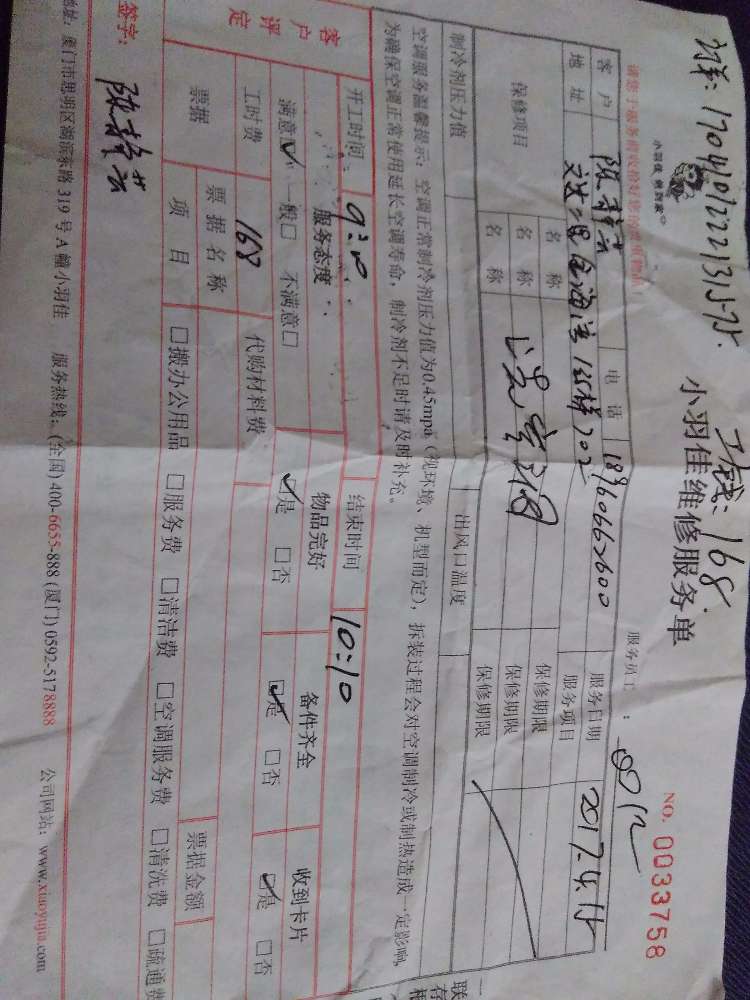 170410122213
工钱:168
小羽佳 做到家
小羽佳维修服务单
NO. 0033758
请您于服务前收拾好您的贵重物品!
服务员工:
客户 陈静芸 电话 18960662600 服务日期 2017.4.15
地址 202 服务项目
保修项目 名称 保修期限
名称 保修期限
名称 保修期限
制冷剂压力值 出风口温度
空调服务温馨提示:空调正常制冷剂压力值为0.45mpa(视环境、机型而定),拆装过程会对空调制冷或制热造成一定影响,
为确保空调正常使用延长空调寿命,制冷剂不足时请及时补充。
开工时间 结束时间 10:10
客户评定 服务态度 物品完好 备件齐全 收到卡片
满意☑ 一般□ 不满意□ ☑是 □否 ☑是 □否 ☑是 □否
工时费 168 代购材料费
票据 票据名称 票据金额
项目 □搬办公用品 □服务费 □清洁费 □空调服务费 □清洗费 □疏通费
签字: 陈静芸
地址:厦门市思明区湖滨东路319号A幢小羽佳 服务热线:(全国)400-6655-888 (厦门)0592-5178888 公司网站:www.xiaoyujia.com